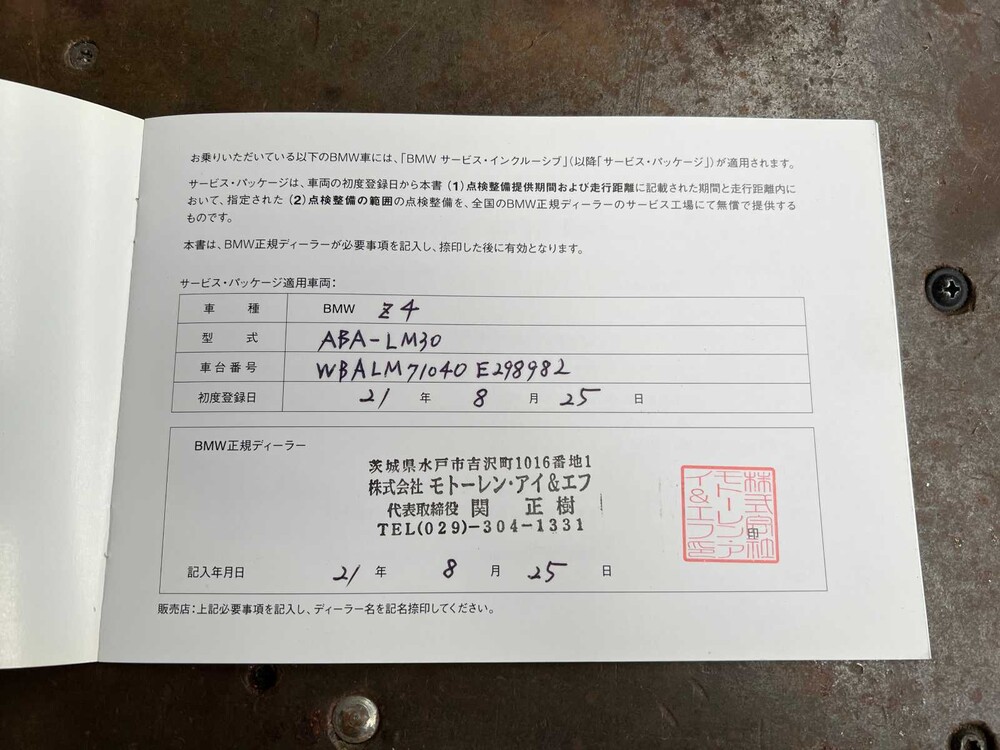 お乗りいただいている以下のBMW車には、「BMW サービス・インクルーシブ」（以降「サービス・パッケージ」）が適用されます。
サービス・パッケージは、車両の初度登録日から本書（1）点検整備提供期間および走行距離に記載された期間と走行距離内に
おいて、指定された（2）点検整備の範囲の点検整備を、全国のBMW正規ディーラーのサービス工場にて無償で提供する
ものです。
本書は、BMW正規ディーラーが必要事項を記入し、捺印した後に有効となります。
サービス・パッケージ適用車両：
車種 BMW Z4
型式 ABA-LM30
車台番号 WBALM71040E298982
初度登録日 21 年 8 月 25 日
BMW正規ディーラー
茨城県水戸市吉沢町1016番地1
株式会社 モトーレン・アイ&エフ
代表取締役 関 正樹
TEL(029)-304-1331
株式会社
モトーレン・ア
イ&エフ印
印
記入年月日 21 年 8 月 25 日
販売店：上記必要事項を記入し、ディーラー名を記名捺印してください。